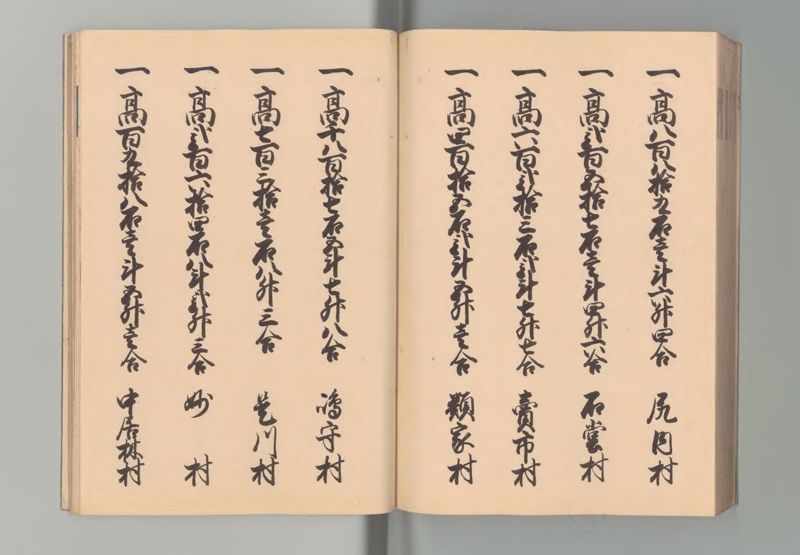 一高八百八拾五石壱斗六舛四合 尻内村
一高弐百五拾七石壱斗四舛六合 石堂村
一高六百弐拾三石弐斗七舛七合 賣市村
一高四百拾五石弐斗五舛壱合 類家村
一高千八百拾七石五斗七舛八合 嶋守村
一高七百三拾壱石八舛三合 是川村
一高弐百六拾四石八斗弐舛三合 妙村
一高百五拾八石壱斗五舛壱合 中居林村